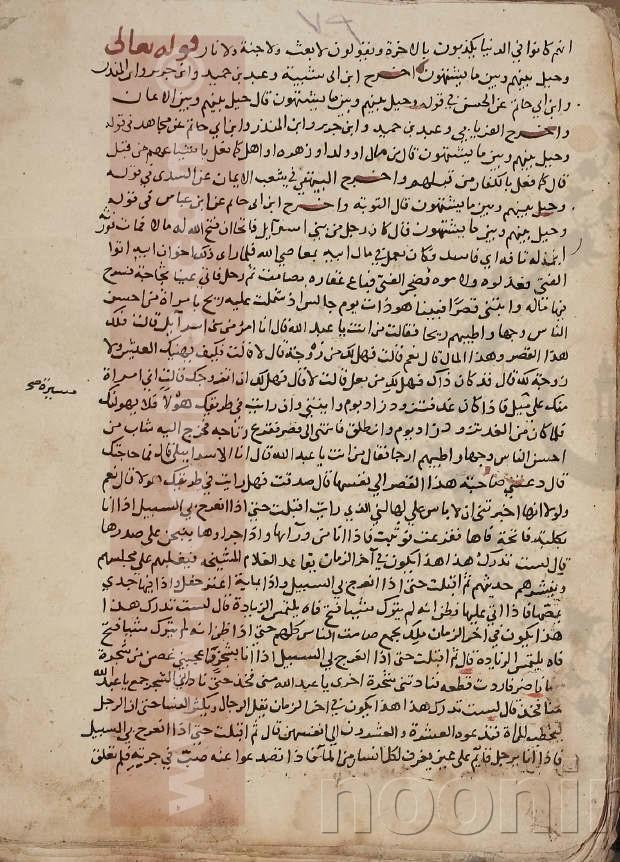 انهم كانوا في الدنيا يكذبون بالاخرة ويقولون لا بعث ولا جنة ولا نار قوله تعالى
وحيل بينهم وبين ما يشتهون اخرج ابن ابي شيبة وعبد بن حميد وابن جرير وابن المنذر
وابن ابي حاتم عن الحسن في قوله وحيل بينهم وبين ما يشتهون قال حيل بينهم وبين الايمان
واخرج الفريابي وعبد بن حميد وابن جرير وابن المنذر وابن ابي حاتم عن مجاهد في قوله
وحيل بينهم وبين ما يشتهون قال من مال او ولد او زهرة او اهل كما فعل باشياعهم من قبل
قال كما فعل بالكفار من قبلهم واخرج البيهقي في شعب الايمان عن السدي في قوله
وحيل بينهم وبين ما يشتهون قال التوبة واخرج ابن ابي حاتم عن ابن عباس في قوله
وحيل بينهم وبين ما يشتهون قال كان رجل من بني اسرآيل فاتحا فتح الله له مالا فمات فورثه
ابن له تافه اي فاسد وكان يعمل في مال ابيه بمعاصي الله فلما راى ذلك اخوان ابيه اتوا
الفتى فعذلوه ولاموه فضجر الفتى فباع عقاره بصامت ثم رحل فاتى عينا ثجاجة فسرح
فيها ماله وابتنى قصرا فبينا هو ذات يوم جالس اذ شملت عليه ريح بامراة من احسن
الناس وجها واطيبهم ريحا فقالت من انت يا عبد الله قال انا امرؤ من بني اسرآيل قالت فلك
هذا القصر وهذا المال قال نعم قالت فهل لك من زوجة قال لا قالت فكيف يهنيك العيش ولا
زوجة لك قال قد كان ذاك فهل لك من بعل قالت لا قال فهل لك ان اتزوجك قالت اني امراة
منك على ميل فاذا كان غد فتزود زاد يوم وائتني وان رايت في طريقك هولا فلا يهولنك
مسيرة صح
فلما كان من الغد تزود زاد يوم وانطلق فانتهى الى قصر فقرع رتاجه فخرج اليه شاب من
احسن الناس وجها واطيبهم ارجا فقال من انت يا عبد الله قال انا الاسراييلي قال فما حاجتك
قال دعتني صاحبة هذا القصر الى نفسها قال صدقت فهل رايت في طريقك هولا قال نعم
ولولا انها اخبرتني ان لا باس علي لهالني الذي رايت اقبلت حتى اذا انفرج بي السبيل اذا انا
بكلبة فاتحة فاها ففزعت فوثبت فاذا انا من ورآيها واذا جراوها ينبحن على صدرها
قال لست تدرك هذا هذا يكون في آخر الزمان يقاعد الغلام المشيخة فيغلبهم على مجلسهم
ويبزهم حديثهم ثم اقبلت حتى اذا انفرج بي السبيل واذا بماية اعنز حفل واذا فيها جدي
يمصها فاذا اتى عليها فظن انه لم يترك شيئا فتح فاه يلتمس الزيادة قال لست تدرك هذا
هذا يكون في اخر الزمان ملك يجمع صامت الناس كلهم حتى اذا ظن انه لم يترك شيئا فتح
فاه يلتمس الزيادة قال ثم اقبلت حتى اذا انفرج بي السبيل اذا انا بشجر فاعجبني غصن من شجرة
منها ناضر فاردت قطعه فنادتني شجرة اخرى يا عبد الله مني فخذ حتى ناداني الشجر اجمع يا عبد الله
منا فخذ قال لست تدرك هذا هذا يكون في اخر الزمان يقل الرجال ويكثر النسا حتى ان الرجل
ليخطب المراة فتدعوه العشرة والعشرون الى انفسهن قال ثم اقبلت حتى اذا انفرج بي السبيل
فاذا انا برجل قايم على عين يغرف لكل انسان من المآ فاذا تصدعوا عنه صب في جرته فلم تعلق
noonin